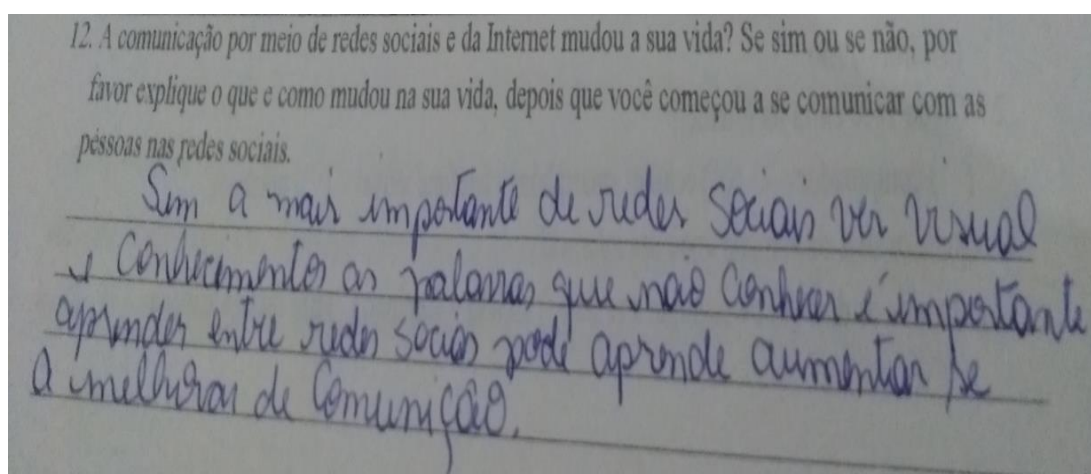 12. A comunicação por meio de redes sociais e da Internet mudou a sua vida? Se sim ou se não, por
favor explique o que e como mudou na sua vida, depois que você começou a se comunicar com as
pessoas nas redes sociais.
Sim a mais importante de redes sociais ver visual
e conhecimentos as palavras que não conhecer é importante
aprender entre redes sociais pode aprende aumentar se
a melhorar de comunição.